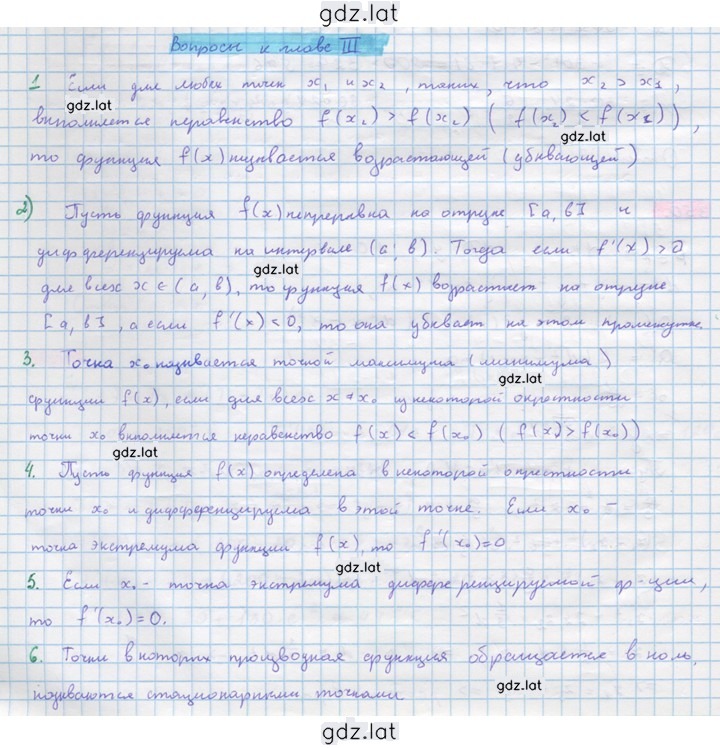 gdz.lat
Вопросы к главе III
1 Если для любых точек x₁ и x₂, таких, что x₂ > x₁,
gdz.lat
выполняется неравенство f(x₂) > f(x₁) ( f(x₂) < f(x₁) ),
gdz.lat
то функция f(x) называется возрастающей (убывающей)
2) Пусть функция f(x) непрерывна на отрезке [a, b] и
дифференцируема на интервале (a; b). Тогда если f'(x) > 0
gdz.lat
для всех x ∈ (a, b), то функция f(x) возрастает на отрезке
[a, b], а если f'(x) < 0, то она убывает на этом промежутке.
3. Точка x₀ называется точкой максимума (минимума)
gdz.lat
функции f(x), если для всех x ≠ x₀ из некоторой окрестности
точки x₀ выполняется неравенство f(x) < f(x₀) ( f(x) > f(x₀))
gdz.lat
4. Пусть функция f(x) определена в некоторой окрестности
точки x₀ и дифференцируема в этой точке. Если x₀ –
точка экстремума функции f(x), то f'(x₀)=0
gdz.lat
5. Если x₀ - точка экстремума дифференцируемой ф-ции,
то f'(x₀)=0.
6. Точки в которых производная функция обращается в ноль,
gdz.lat
называются стационарными точками
gdz.lat